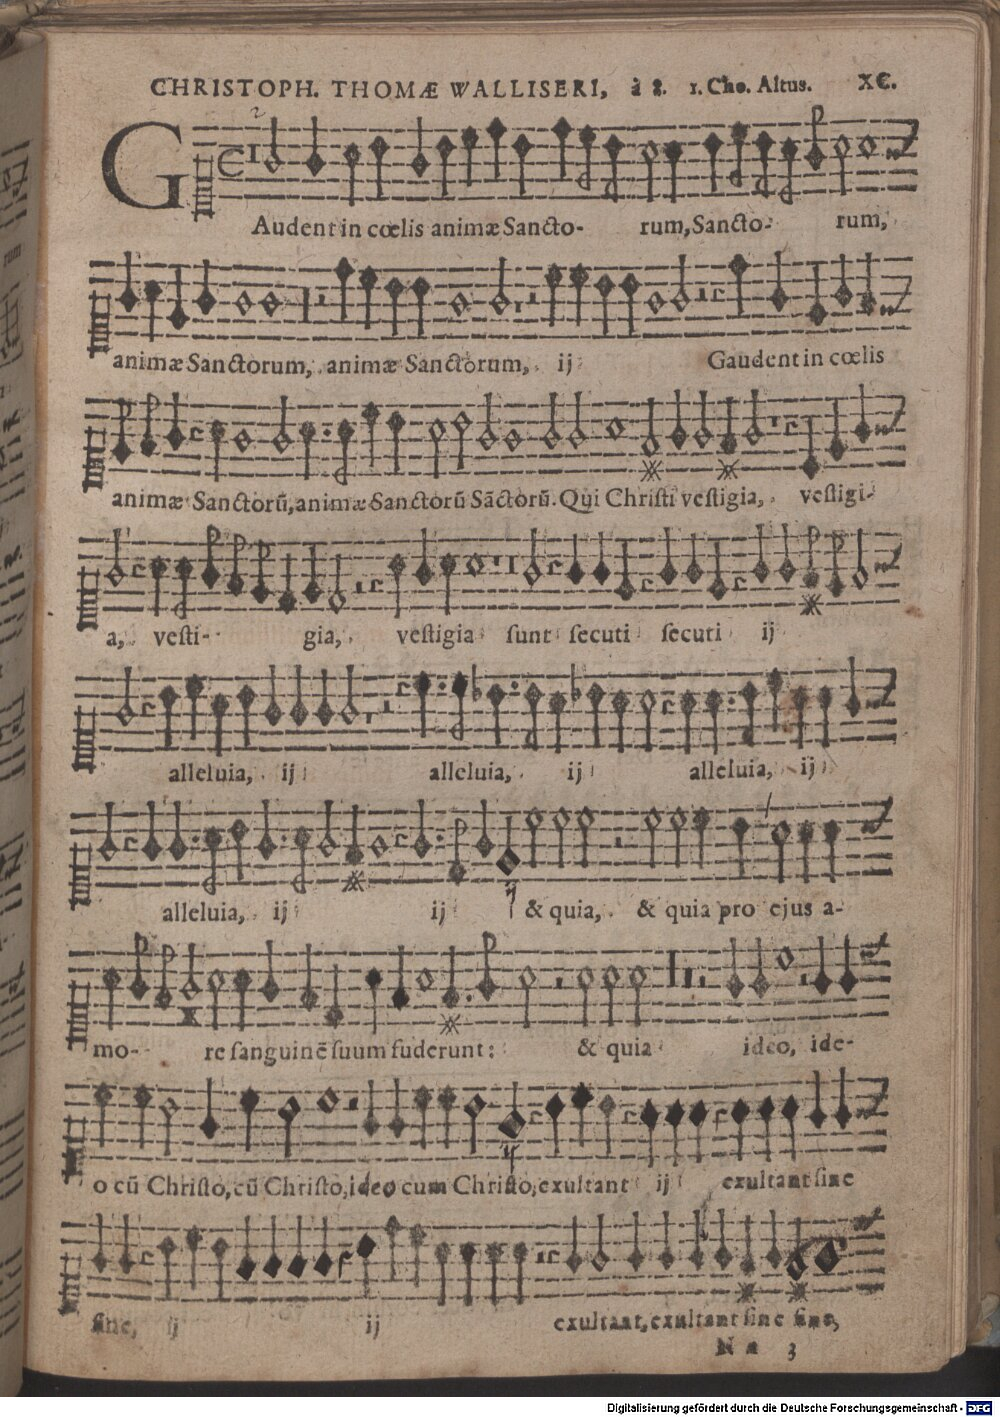 CHRISTOPH. THOMÆ WALLISERI, à 8. 1. Cho. Altus. XC.
GAudent in cœlis animæ Sancto- rum, Sancto- rum,
animæ Sanctorum, animæ Sanctorum, ij Gaudent in cœlis
animæ Sanctorũ, animæ Sanctorũ Sãctorũ. Qui Christi vestigia, vestigi-
a, vesti- gia, vestigia sunt secuti secuti ij
alleluia, ij alleluia, ij alleluia, ij
alleluia, ij ij & quia, & quia pro ejus a-
mo- re sanguinẽ suum fuderunt: & quia ideo, ide-
o cũ Christo, cũ Christo, ideo cum Christo, exultant ij exultant sine
sine, ij ij exultant, exultant sine sine,
N n 3
Digitalisierung gefördert durch die Deutsche Forschungsgemeinschaft - DFG